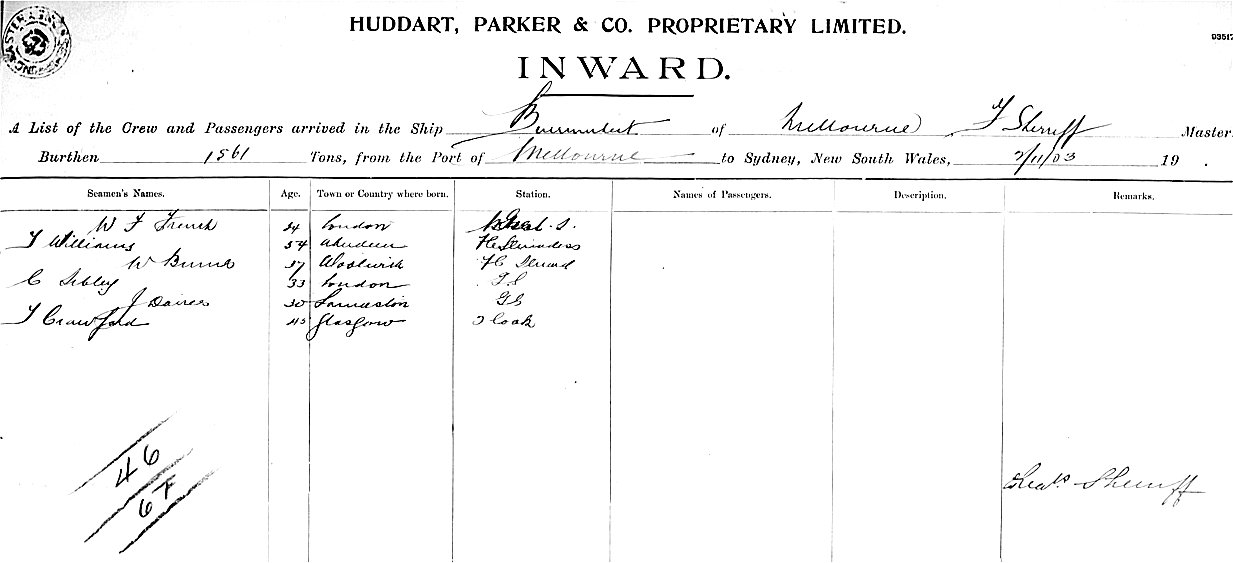 HUDDART, PARKER & CO. PROPRIETARY LIMITED.
INWARD.
A List of the Crew and Passengers arrived in the Ship Burrumbeet of Melbourne J Sherriff Master
Burthen 1561 Tons, from the Port of Melbourne to Sydney, New South Wales, 2/11/03 19 .
Seamen's Names. Age. Town or Country where born. Station. Names of Passengers. Description. Remarks.
W F French London S.
T Williams 54 Aberdeen
W 37 Woolwich
C Sibley 33 London FS
J Davies 30 GS
T Crawford 45 Glasgow Cook
46
64
Sherriff